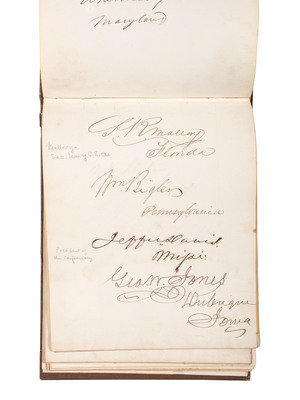 Maryland
S. R. Mallory
Florida
Mallory -
Sec. Navy C.S.A.
Wm Bigler
Pennsylvania
Jeffer. Davis
Missi.
President of
the Confederacy
Geo W. Jones
Dubuque
Iowa